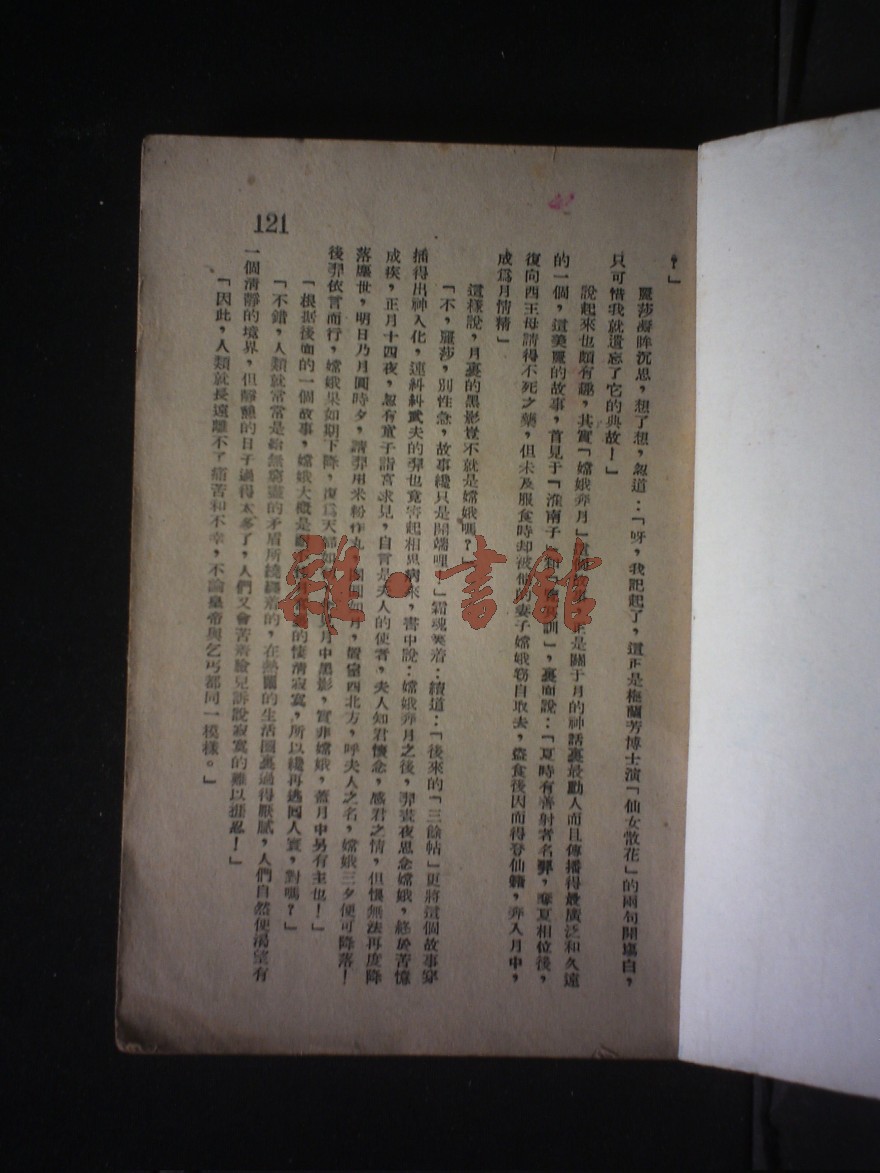 121
？」
麗莎凝眸沉思，想了想，忽道：「呀，我記起了，這正是梅蘭芳博士演「仙女散花」的兩句開塲白，
只可惜我就遺忘了它的典故！」
說起來也頗有趣，其實「嫦娥奔月」這個故事，正是關于月的神話裏最動人而且傳播得最廣泛和久遠
的一個，這美麗的故事，首見于「淮南子」訓」，裏面說：「夏時有善射者名羿，奪夏相位後，
復向西王母請得不死之藥，但未及服食時却被他的妻子嫦娥竊自取去，盜食後因而得登仙籍，奔入月中，
成爲月情精」
這樣說，月裏的黑影豈不就是嫦娥嗎？」
「不，麗莎，別性急，故事纔只是開端哩！」霜魂笑着：續道：「後來的「三餘帖」更將這個故事穿
插得出神入化，連糾糾武夫的羿也竟害起相思病來，書中說：嫦娥奔月之後，羿晝夜思念嫦娥，終於苦憶
成疾，正月十四夜，忽有童子詣宮求見，自言是夫人的使者，夫人知君懷念，感君之情，但恨無法再度降
落塵世，明日乃月圓時夕，請羿用米粉作丸，團團如月，置室西北方，呼夫人之名，嫦娥三夕便可降落！
後羿依言而行，嫦娥果如期下降，復爲夫婦如月中黑影，實非嫦娥，蓋月中另有主也！」
「根據後面的一個故事，嫦娥大概是的悽清寂寞，所以纔再逃囘人寰，對嗎？」
「不錯，人類就常常是給無窮盡的矛盾所繞纏着的，在熱鬧的生活圈裏過得厭膩，人們自然便渴望有
一個清靜的境界，但靜謐的日子過得太多了，人們又會苦着臉兒訴說寂寞的難以捱忍！」
「因此，人類就長遠離不了痛苦和不幸，不論皇帝與乞丐都同一模樣。」
雜·書館